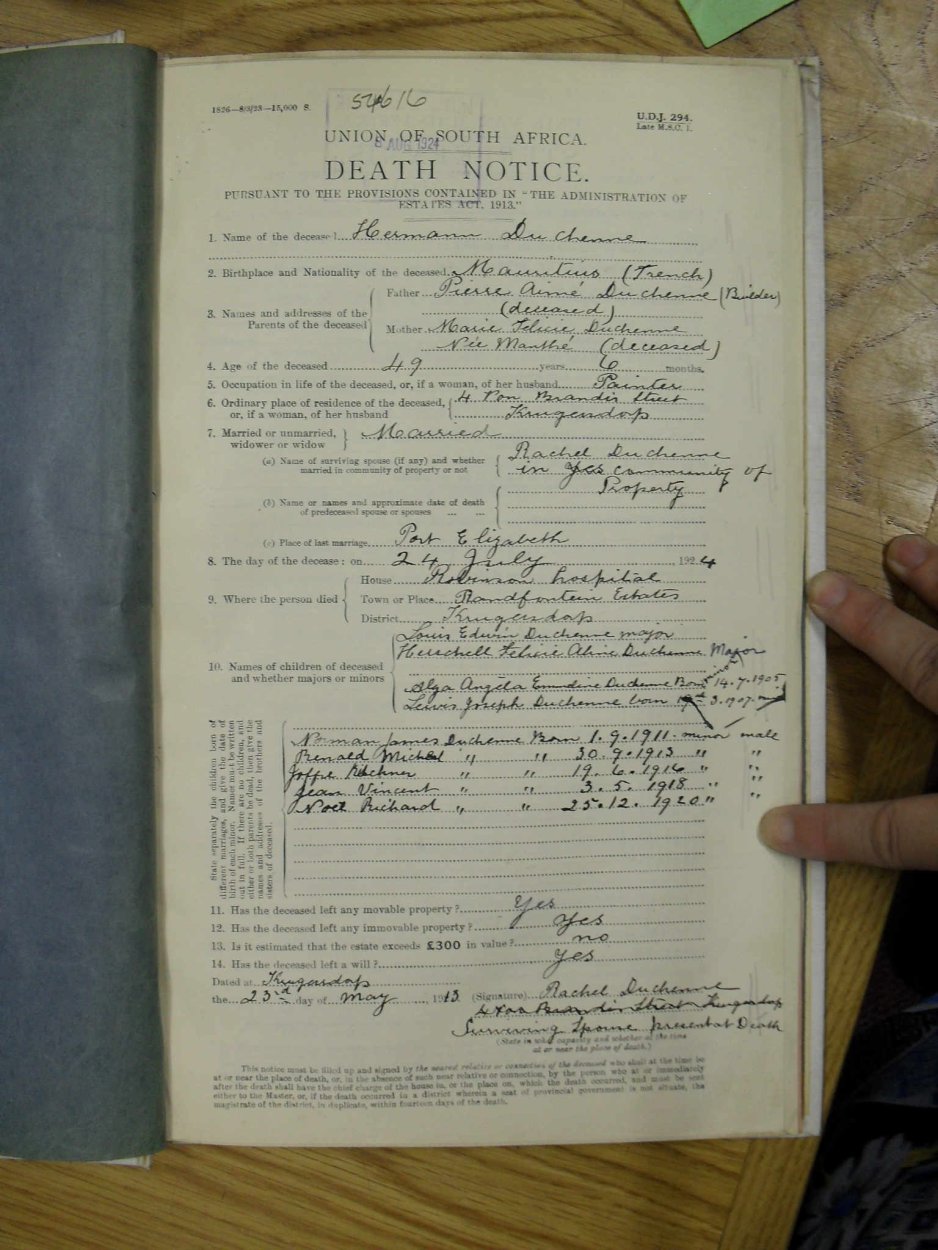 1826—8/3/23—15,000 S.
54616
U.D.J. 294.
Late M.S.C. 1.
UNION OF SOUTH AFRICA.
AUG 1924
DEATH NOTICE.
PURSUANT TO THE PROVISIONS CONTAINED IN "THE ADMINISTRATION OF
ESTATES ACT, 1913."
1. Name of the deceased Hermann Duchenne
2. Birthplace and Nationality of the deceased Mauritius (French)
3. Names and addresses of the Parents of the deceased
Father Pierre Aimé Duchenne (Builder)
(deceased)
Mother Marie Felicie Duchenne
Née Manthé (deceased)
4. Age of the deceased 49 years 6 months.
5. Occupation in life of the deceased, or, if a woman, of her husband Painter
6. Ordinary place of residence of the deceased, or, if a woman, of her husband
4 Von Brandis Street
Krugersdorp
7. Married or unmarried, widower or widow Married
(a) Name of surviving spouse (if any) and whether married in community of property or not
Rachel Duchenne
in yes community of
Property
(b) Name or names and approximate date of death of predeceased spouse or spouses ... ...
(c) Place of last marriage Port Elizabeth
8. The day of the decease: on 24 July 1924
9. Where the person died
House Robinson hospital
Town or Place Randfontein Estates
District Krugersdorp
10. Names of children of deceased and whether majors or minors
Louis Edwin Duchenne major
Herschell Felicie Aline Duchenne Major
Olga Angéla Emmeline Duchenne Born 14.7.1905 minor
Lewis Joseph Duchenne born 3.1907
State separately the children born of different marriages, and give the date of birth of each minor. Names must be written out in full. If there are no children, and either or both parents be dead, then give the names and addresses of the brothers and sisters of deceased.
Norman James Duchenne Born 1.9.1911 minor male
Renald Michel " " 30.9.1913 " "
Joffre Kitchner " " 19.6.1916 " "
Jean Vincent " " 3.5.1918 " "
Noel Richard " " 25.12.1920 " "
11. Has the deceased left any movable property? Yes
12. Has the deceased left any immovable property? Yes
13. Is it estimated that the estate exceeds £300 in value? no
14. Has the deceased left a will? Yes
Dated at Krugersdorp
the 23rd day of May, 1913 (Signature) Rachel Duchenne
Brandis Street Krugersdorp
Surviving Spouse present at Death
(State in what capacity and whether at the time
at or near the place of death.)
This notice must be filled up and signed by the nearest relative or connection of the deceased who shall at the time be
at or near the place of death, or, in the absence of such near relative or connection, by the person who at or immediately
after the death shall have the chief charge of the house in, or the place on, which the death occurred, and must be sent
either to the Master, or, if the death occurred in a district wherein a seat of provincial government is not situate, the
magistrate of the district, in duplicate, within fourteen days of the death.